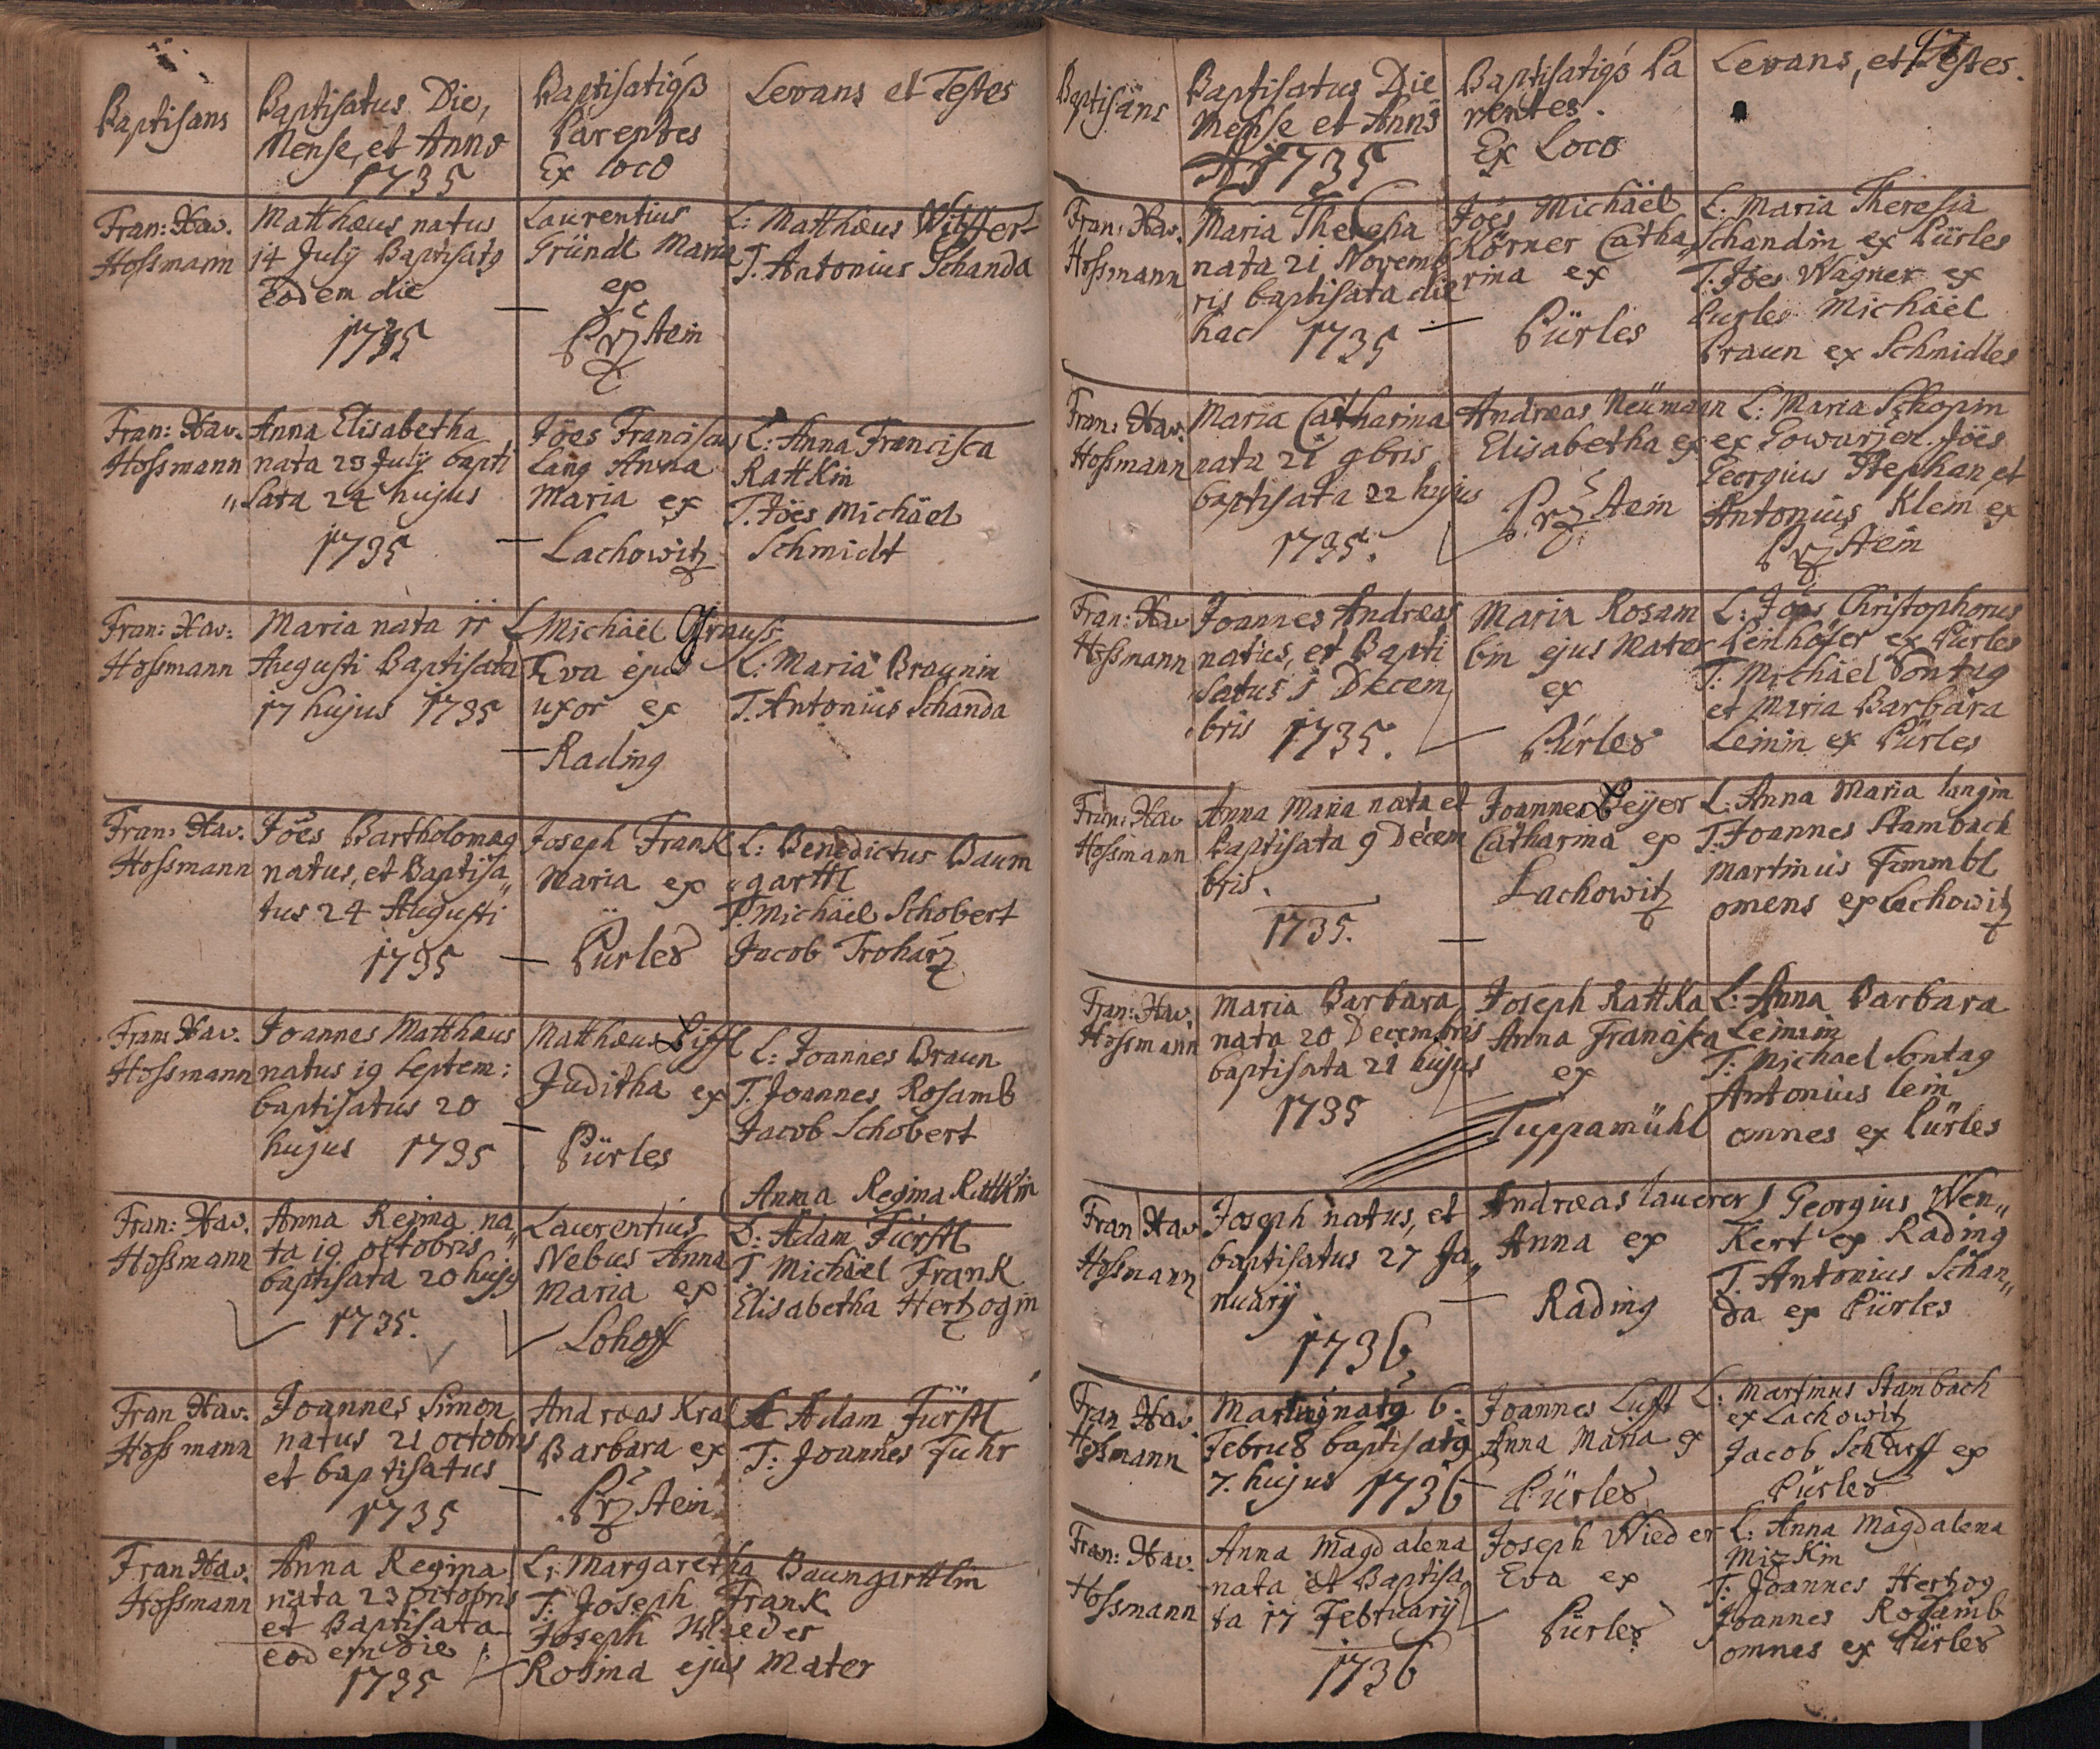 Baptisans
Baptisatus Die,
Mense, et Anno
1735
Baptisatigs
Parentes
Ex loco
Levans et Testes
Fran: Xav.
Hossmann
Matthæus natus
14 July Baptisatg
Eodem die
1735
Laurentius
Gründl Maria
ex
Przstein
L: Matthæus
T. Antonius Schanda
Fran: Xav.
Hossmann
Anna Elisabetha
nata 23 July bapti
„sata 24 hujus
1735
Jöes Franciscus
Lang Anna
Maria ex
Lachowitz
L: Anna Francisca
Rattkin
T. Jöes Michäel
Schmidt
Fran: Xav:
Hossmann
Maria nata
Augusti Baptisata
17 hujus 1735
Michäel Grauss
Eva ejus
uxor ex
Rading
L: Maria Braunin
T. Antonius Schanda
Fran: Xav.
Hossmann
Jöes Bartholomæg
natus, et Baptisa„
tus 24 Augusti
1735
Joseph Frank
Maria ex
Pürles
L: Benedictus Baum
„garttl
T. Michäel Schobert
Jacob Troharz
Fran: Xav.
Hossmann
Joannes Matthæus
natus 19 Septem:
baptisatus 20
hujus 1735
Matthæus Lifft
Juditha ex
Pürles
L: Joannes Braun
T. Joannes Rosamb
Jacob Schobert
Fran: Xav.
Hossmann
Anna Regina na„
ta 19 octobris
baptisata 20 hujg
1735.
Laurentius
Nebus Anna
Maria ex
Lohoff
Anna Regina Rattkin
Adam Fürstl
T Michäel Frank
Elisabetha Hertzogin
Fran Xav.
Hossmann
Joannes Simon
natus 21 octobris
et baptisatus
1735
Andreas Kral
Barbara ex
Przstein
Adam Fürstl
T: Joannes Fuhr
Fran Xav.
Hossmann
Anna Regina
nata 23 octobris
et Baptisata
eodem die
1735
L: Margaretha Baumgarttlin
T: Joseph Frank
Joseph Wieder
Rosina ejus Mater
97
Baptisans
Baptisatus Die
Mense et Anno
1735
Baptisatigs Pa
rentes.
Ex Loco
Levans, et Testes.
Fran: Xav.
Hossmann
Maria Theresia
nata 21 Novemb
ris baptisata die
hac 1735
Jöes Michäel
Körner Catha„
rina ex
Pürles
L: Maria Theresia
Schandin ex Pürles
T. Jöes Wagner ex
Purles Michäel
Praun ex Schmidles
Fran: Xav.
Hossmann
Maria Catharina
nata 21 9bris
baptisata 22 hujus
1735.
Andreas Neümann
Elisabetha ex
Przstein
L: Maria Skopin
ex Gowarzer. Jöes
Georgius Stephan et
Antonius Klein ex
Przstein
Fran: Xav
Hossmann
Joannes Andreas
natus, et Bapti
„satus 1 Decem
bris 1735.
Maria Rosam
bin ejus Mater
ex
Pürles
L: Jöes Christophorus
Peinhöfer ex Pürles
T: Michäel Sontag
et Maria Barbara
Leinin ex Pürles
Fran: Xav
Hossmann
Anna Maria nata et
Baptisata 9 Decem
bris.
1735.
Joannes Beÿer
Catharina ex
Lachowitz
L: Anna Maria Langin
T. Joannes Stambach
Martinus Fimmbl
omens ex Lachowitz
Fran: Xav.
Hossmann
Maria Barbara
nata 20 Decembris
baptisata 21 hujus
1735
Joseph Rattka
Anna Francisca
ex
Tuppamühl
L: Anna Barbara
Leinin
T: Michael Sontag
Antonius lein
omnes ex Pürles
Fran Xav
Hossmann
Joseph natus, et
baptisatus 27 Ja„
nuarÿ
1736
Andræas Lauerer
Anna ex
Rading
Georgius Wen„
kert ex Rading
T. Antonius Schan„
da ex Pürles
Fran Xav.
Hossmann
Marting natg 6.
Februs baptisatg
7. hujus 1736
Joannes Lufft
Anna Maria ex
Pürles
L: Martinus Stambach
ex Lachowitz
Jacob Scharff ex
Pürles
Fran: Xav.
Hossmann
Anna Magdalena
nata et Baptisa
ta 17 Februarÿ
1736
Joseph Wieder
Eva ex
Pürles
L: Anna Magdalena
Mizkin
T: Joannes Hertzog
Joannes Rosamb
omnes ex Pürles